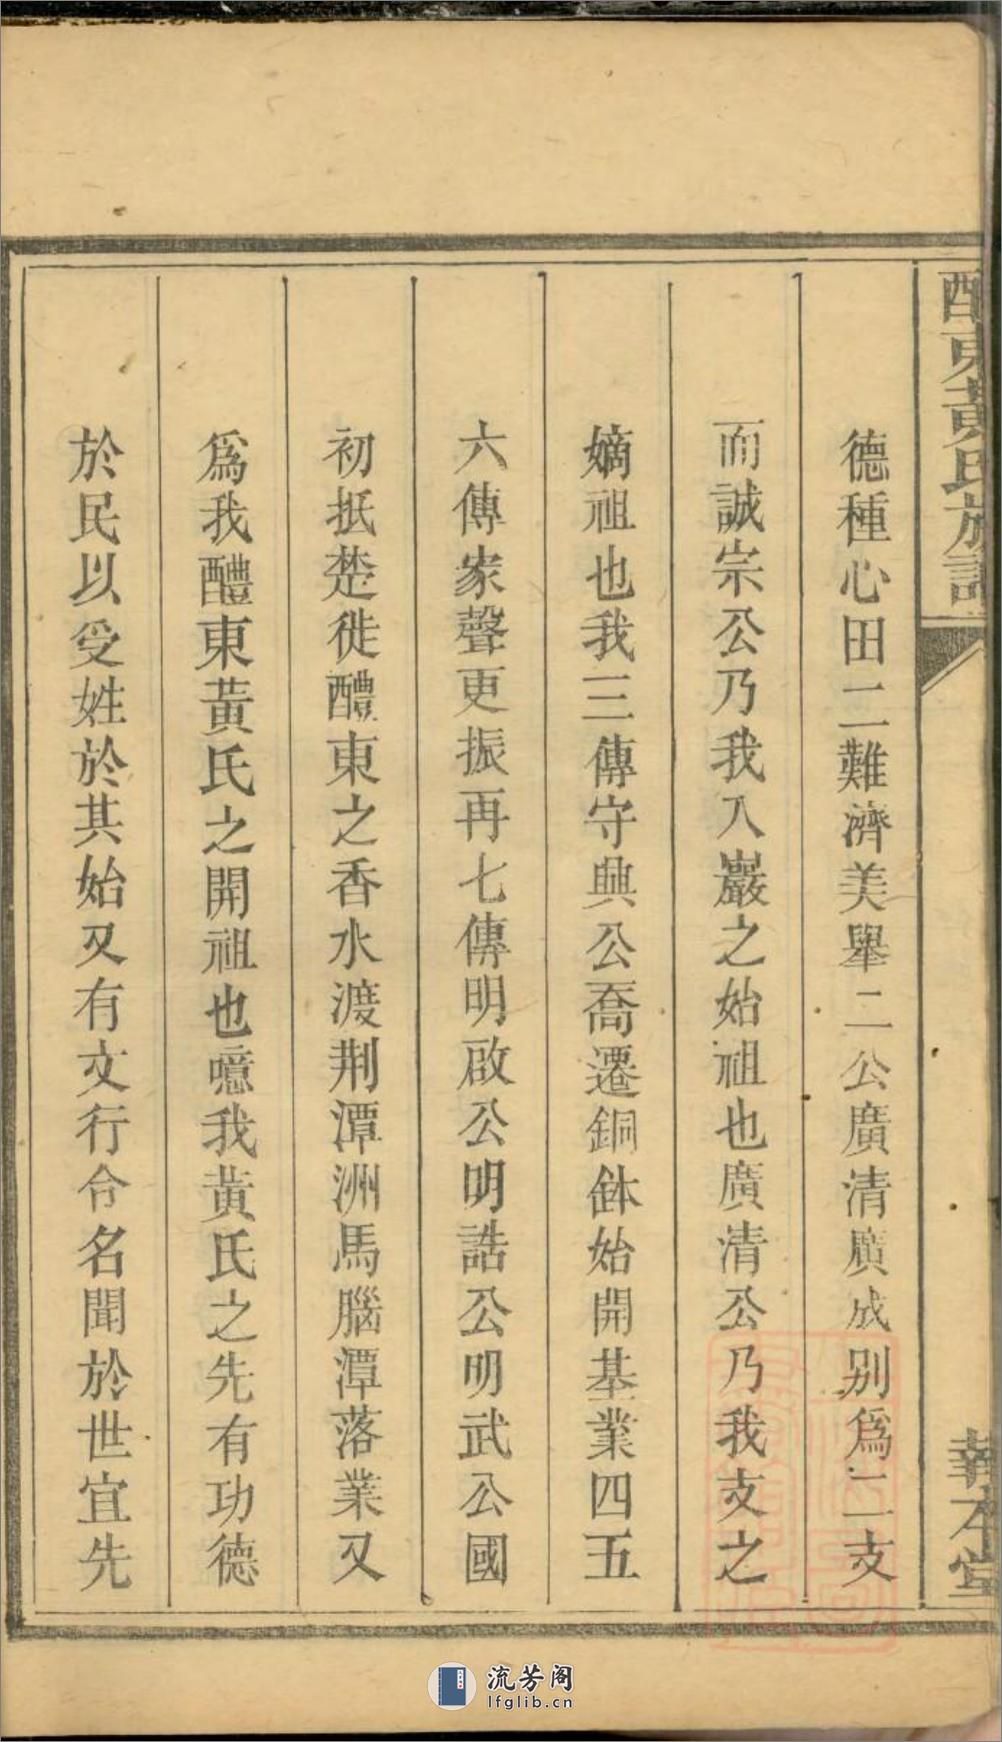 醴東黃氏族譜
報本堂
德種心田二難濟美舉二公廣清廣成别爲二支
而誠宗公乃我入巖之始祖也廣清公乃我支之
嫡祖也我三傳守興公喬遷銅鉢始開基業四五
六傳家聲更振再七傳明啟公明誥公明武公國
初抵楚徙醴東之香水渡荆潭洲馬腦潭落業又
爲我醴東黃氏之開祖也噫我黃氏之先有功德
於民以受姓於其始又有文行令名聞於世宜先
流芳阁
lfglib.cn